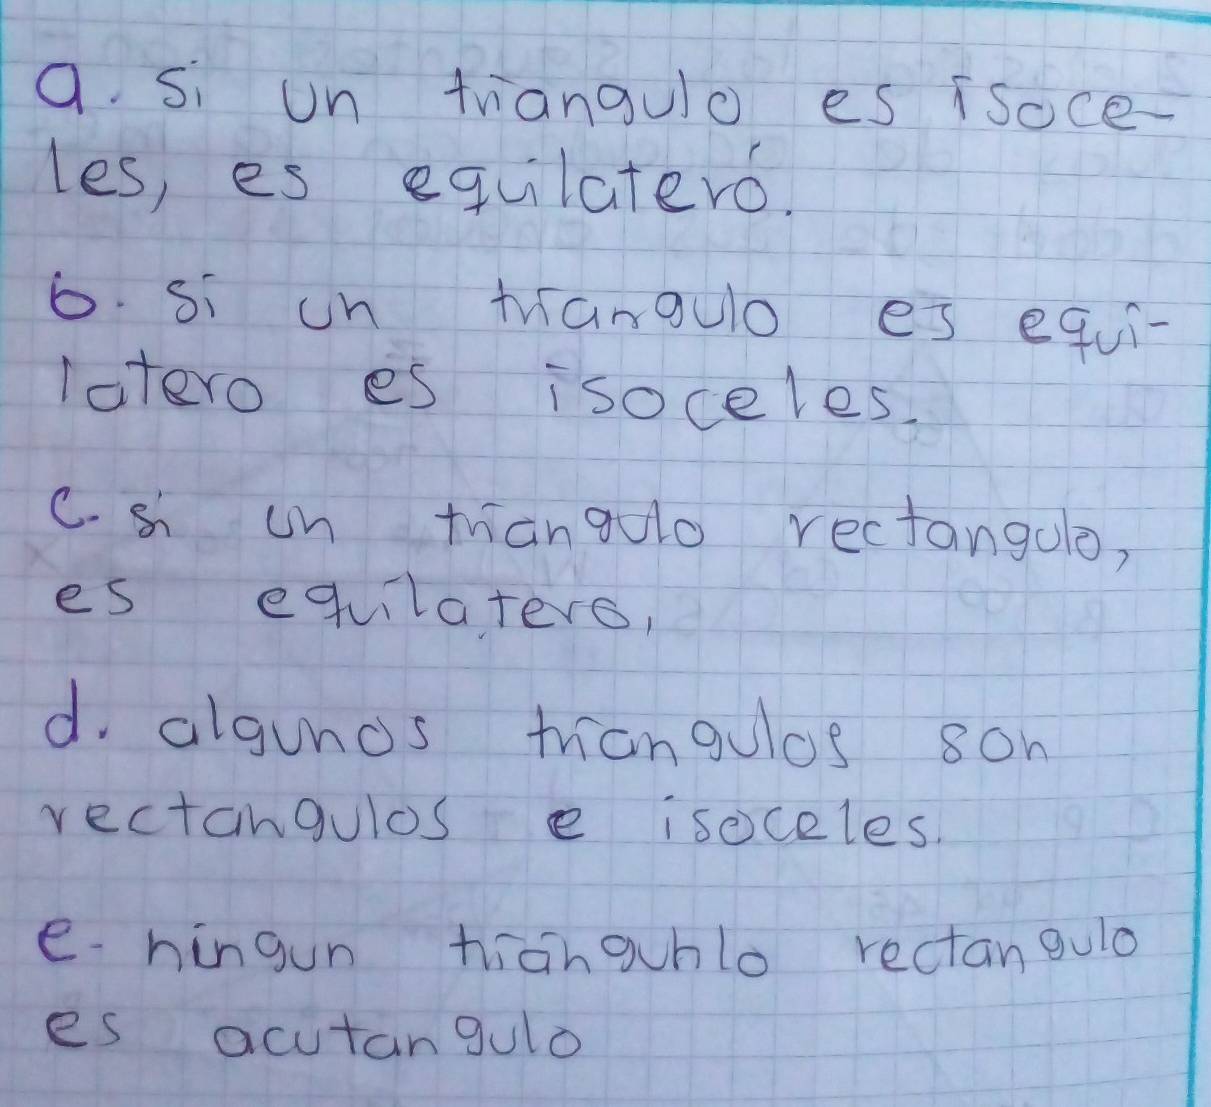 a. Si un triangulo es isoce-
les, es equilatero.
b. Si un triangulo es equi-
latero es isoceles.
c. si un triangulo rectangulo,
es equilatero,
d. algunos triangulos son
rectangulos e isoceles.
e- ningun triangunlo rectangulo
es acutangulo